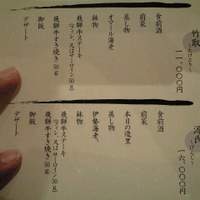 竹取
一一、〇〇〇円
食前酒
前菜
蒸し物
オマール海老
鉢物
飛騨牛ステーキ
飛騨牛すき焼き
御飯
デザート
一六、〇〇〇円
食前酒
前菜
本日の造里
蒸し物
伊勢海老
鉢物
飛騨牛ステーキ
飛騨牛すき焼き
御飯
デザート